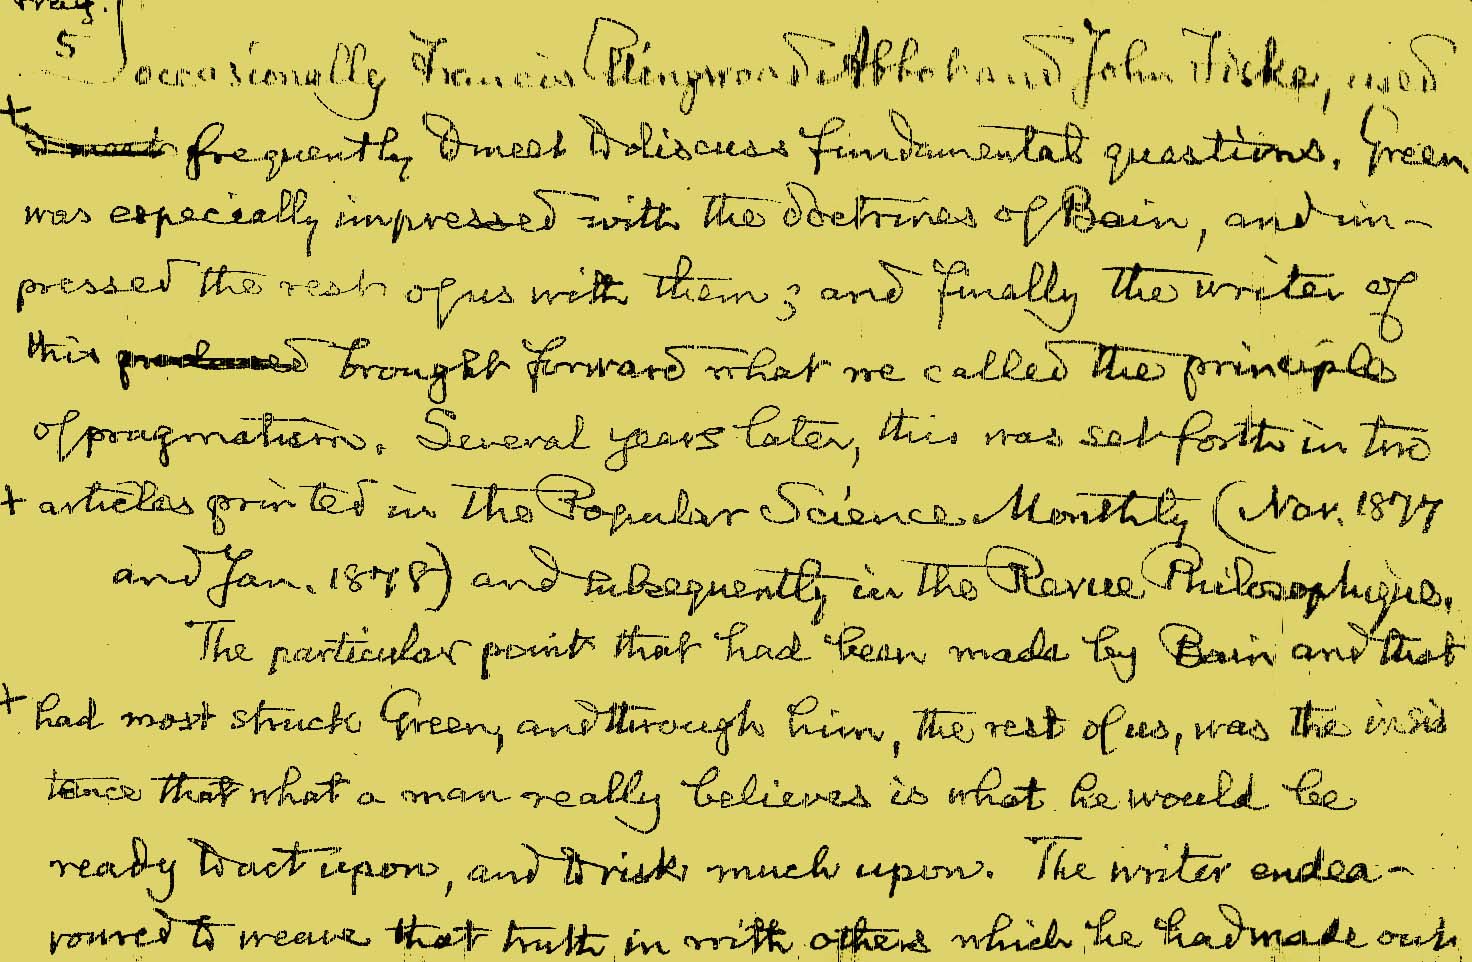 5
occasionally Francis Ellingwood Abbot and John Fiske, used
frequently to meet to discuss fundamental questions. Green
was especially impressed with the doctrines of Bain, and im-
pressed the rest of us with them; and finally the writer of
this brought forward what we called the principle
of pragmatism. Several years later, this was set forth in two
+ articles printed in the Popular Science Monthly (Nov. 1877
and Jan. 1878) and subsequently in the Revue Philosophique.
The particular point that had been made by Bain and that
+ had most struck Green, and through him, the rest of us, was the insis
tence that what a man really believes is what he would be
ready to act upon, and to risk much upon. The writer endea-
voured to weave that truth in with others which he had made out